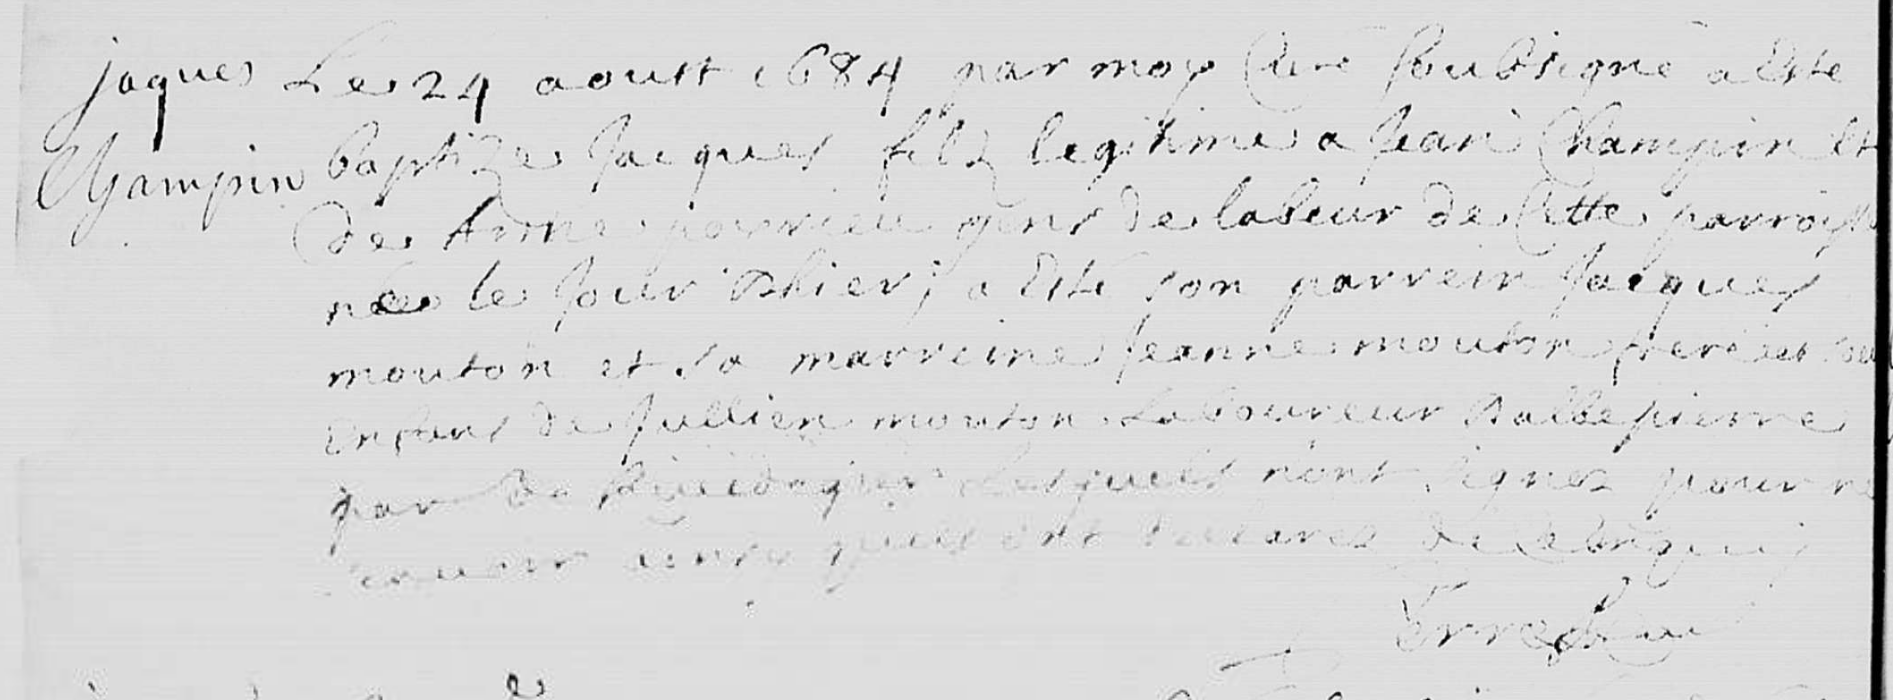 jaques Le 24 aoust 1684 par moy Curé soubsigné a esté
Champin baptizé Jacques filz legitime a Jean Champin et
de Anne gens de labeur de Cette parroisse
née le Jour d'hier, a esté son parrein Jacques
mouton et sa marreine Jeanne mouton frere et
enfans de Jullien mouton Laboureur
par de Lesquels n'ont signez pour ne
scavoir requis